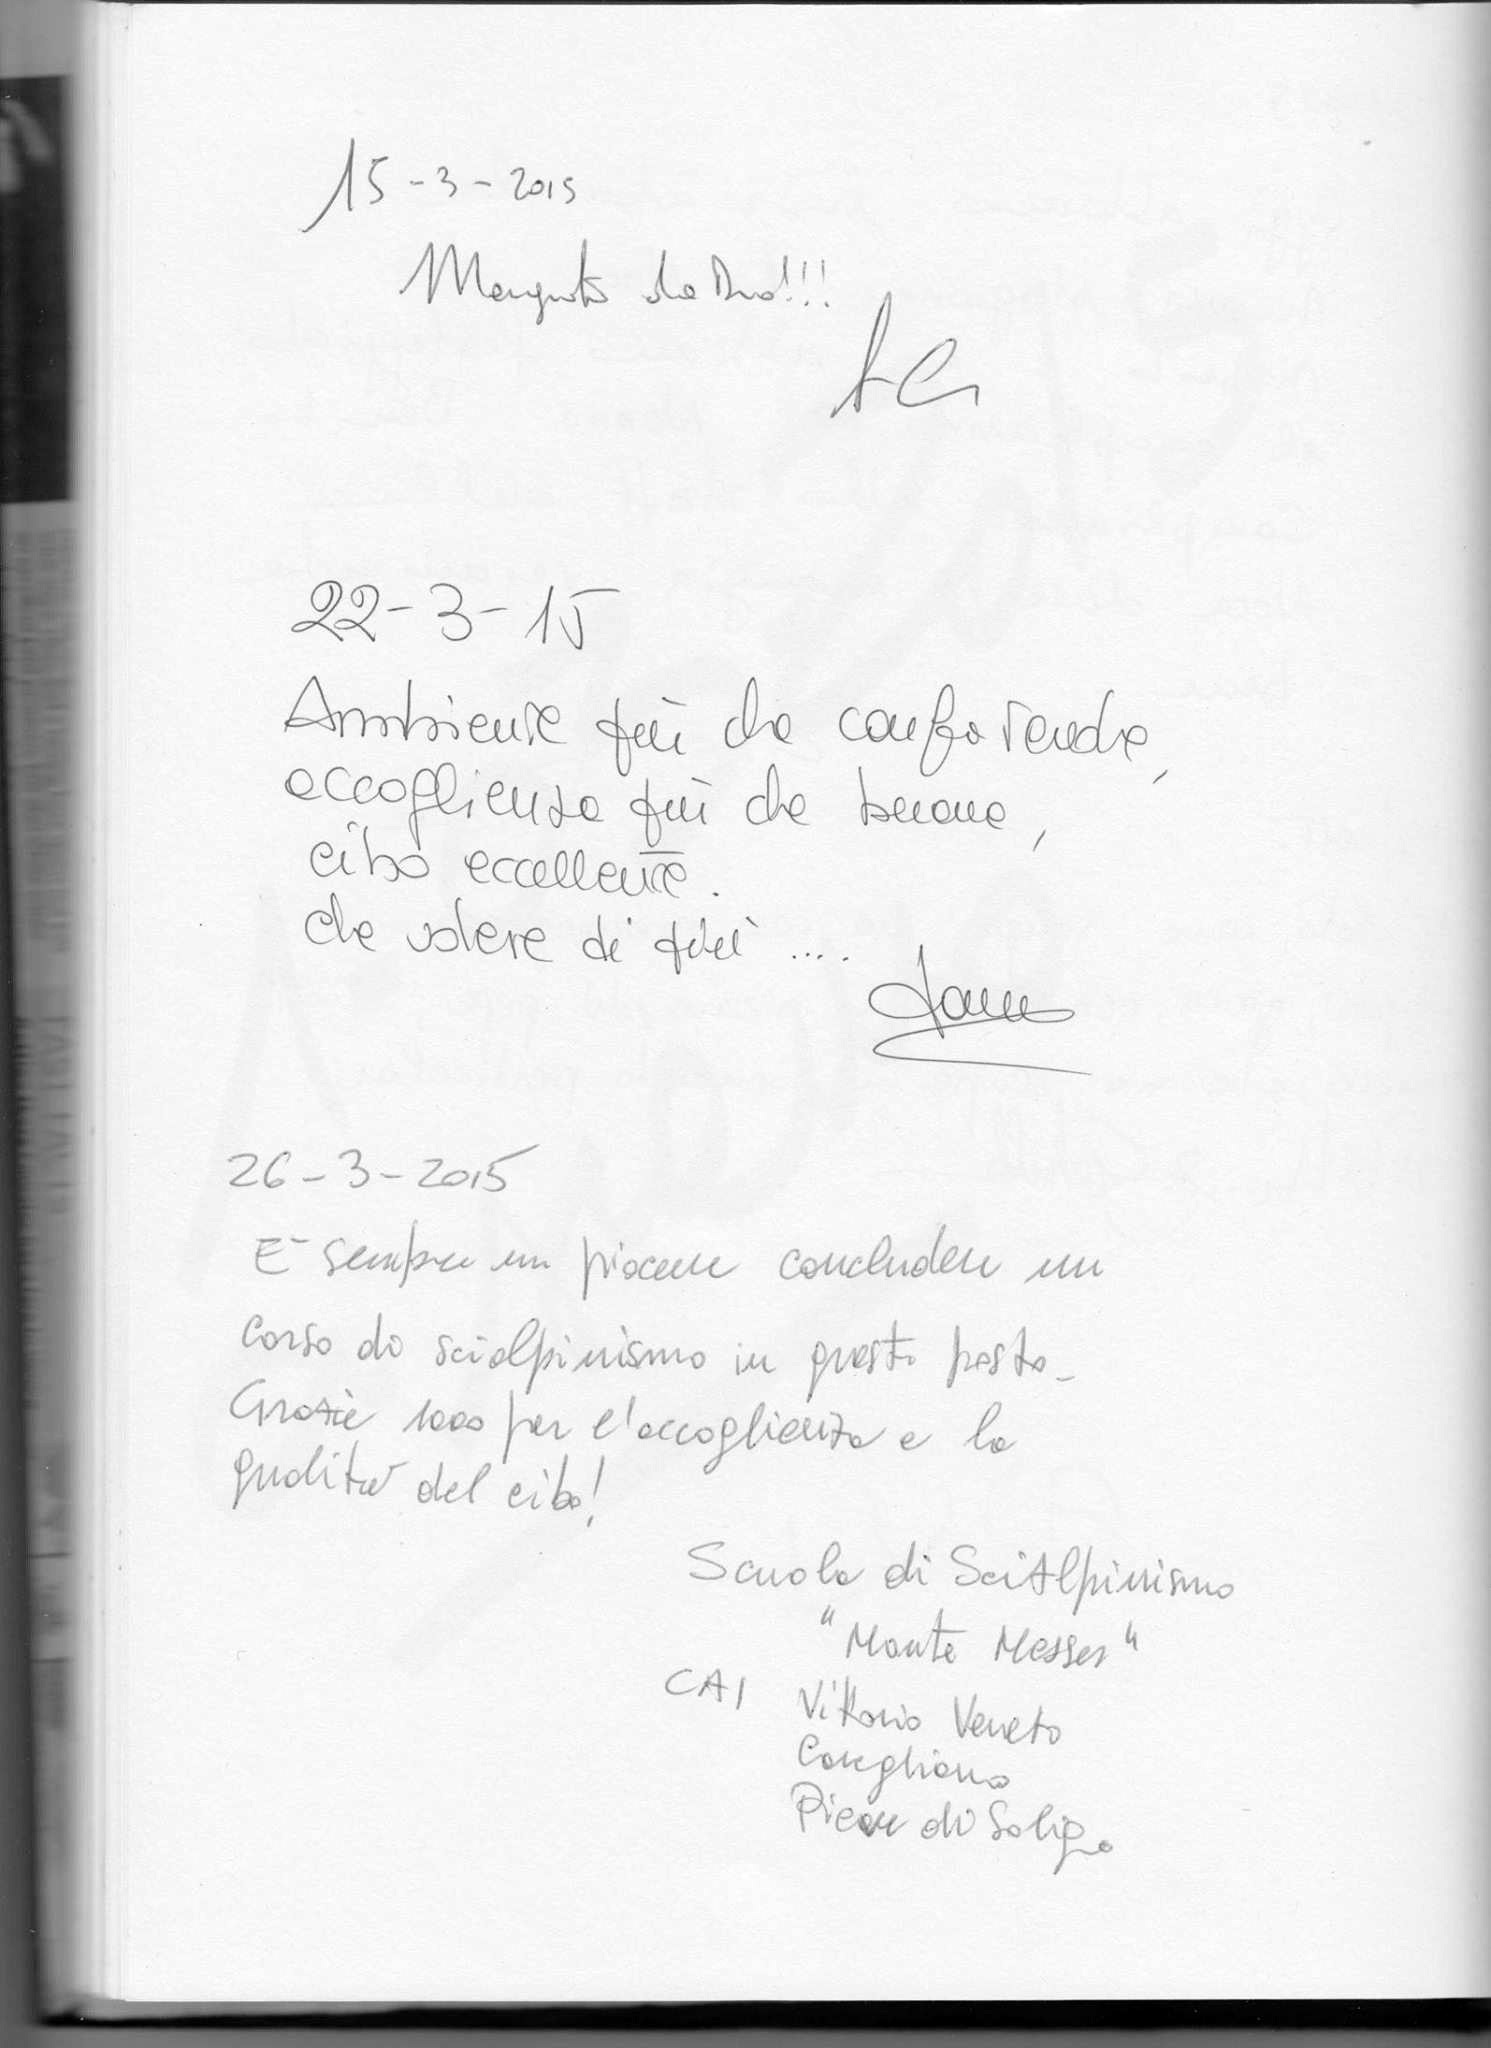 15-3-2015
Mangiato da Dio!!!
22-3-15
Ambiente più che confortevole,
accoglienza più che buona,
cibo eccellente.
che volere di più ....
26-3-2015
E' sempre un piacere concludere un
corso di scialpinismo in questo posto-
Grazie 1000 per l'accoglienza e la
qualità del cibo!
Scuola di SciAlpinismo
"Monte Messer"
CAI Vittorio Veneto
Conegliano
Pieve di Soligo